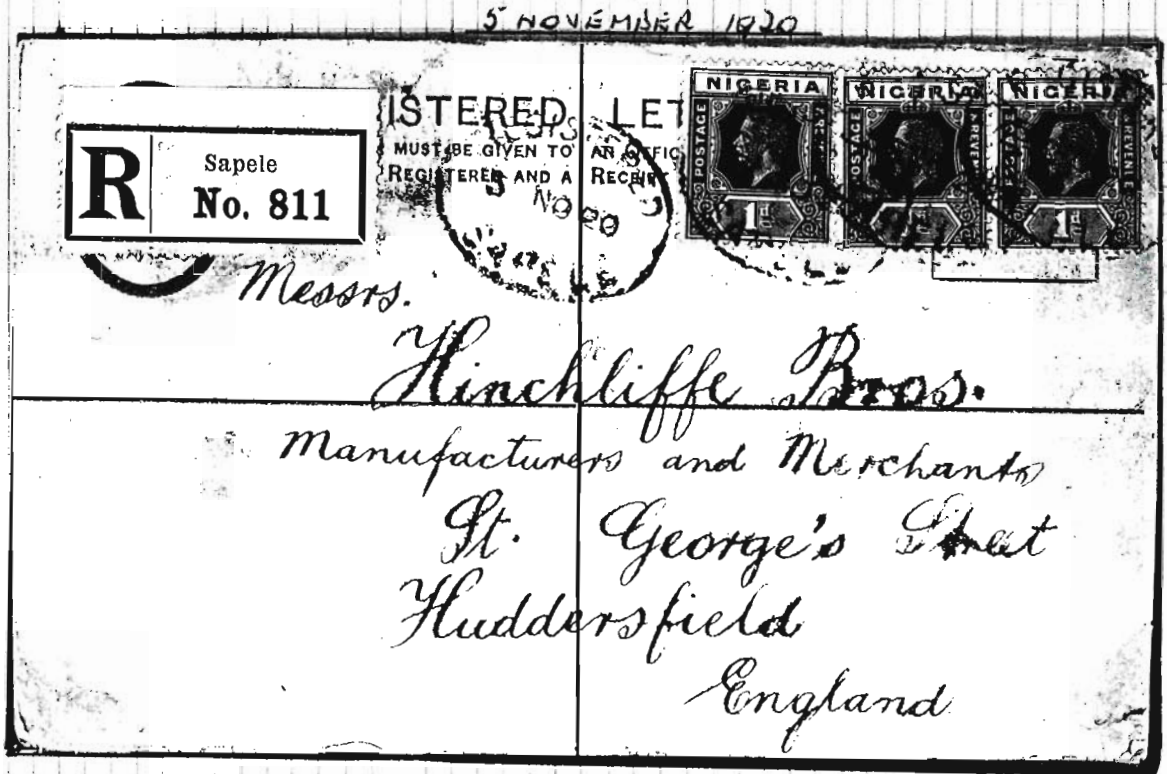 5 NOVEMBER 1920
ISTERED LET
MUST BE GIVEN TO AN OFFIC
REGISTERED AND A RECEIPT
R
Sapele
No. 811
NO 20
NIGERIA
POSTAGE
1d
NIGERIA
POSTAGE
& REVENUE
NIGERIA
POSTAGE
& REVENUE
1d
Messrs.
Hinchliffe Bros.
Manufacturers and Merchants
St. George's Street
Huddersfield
England